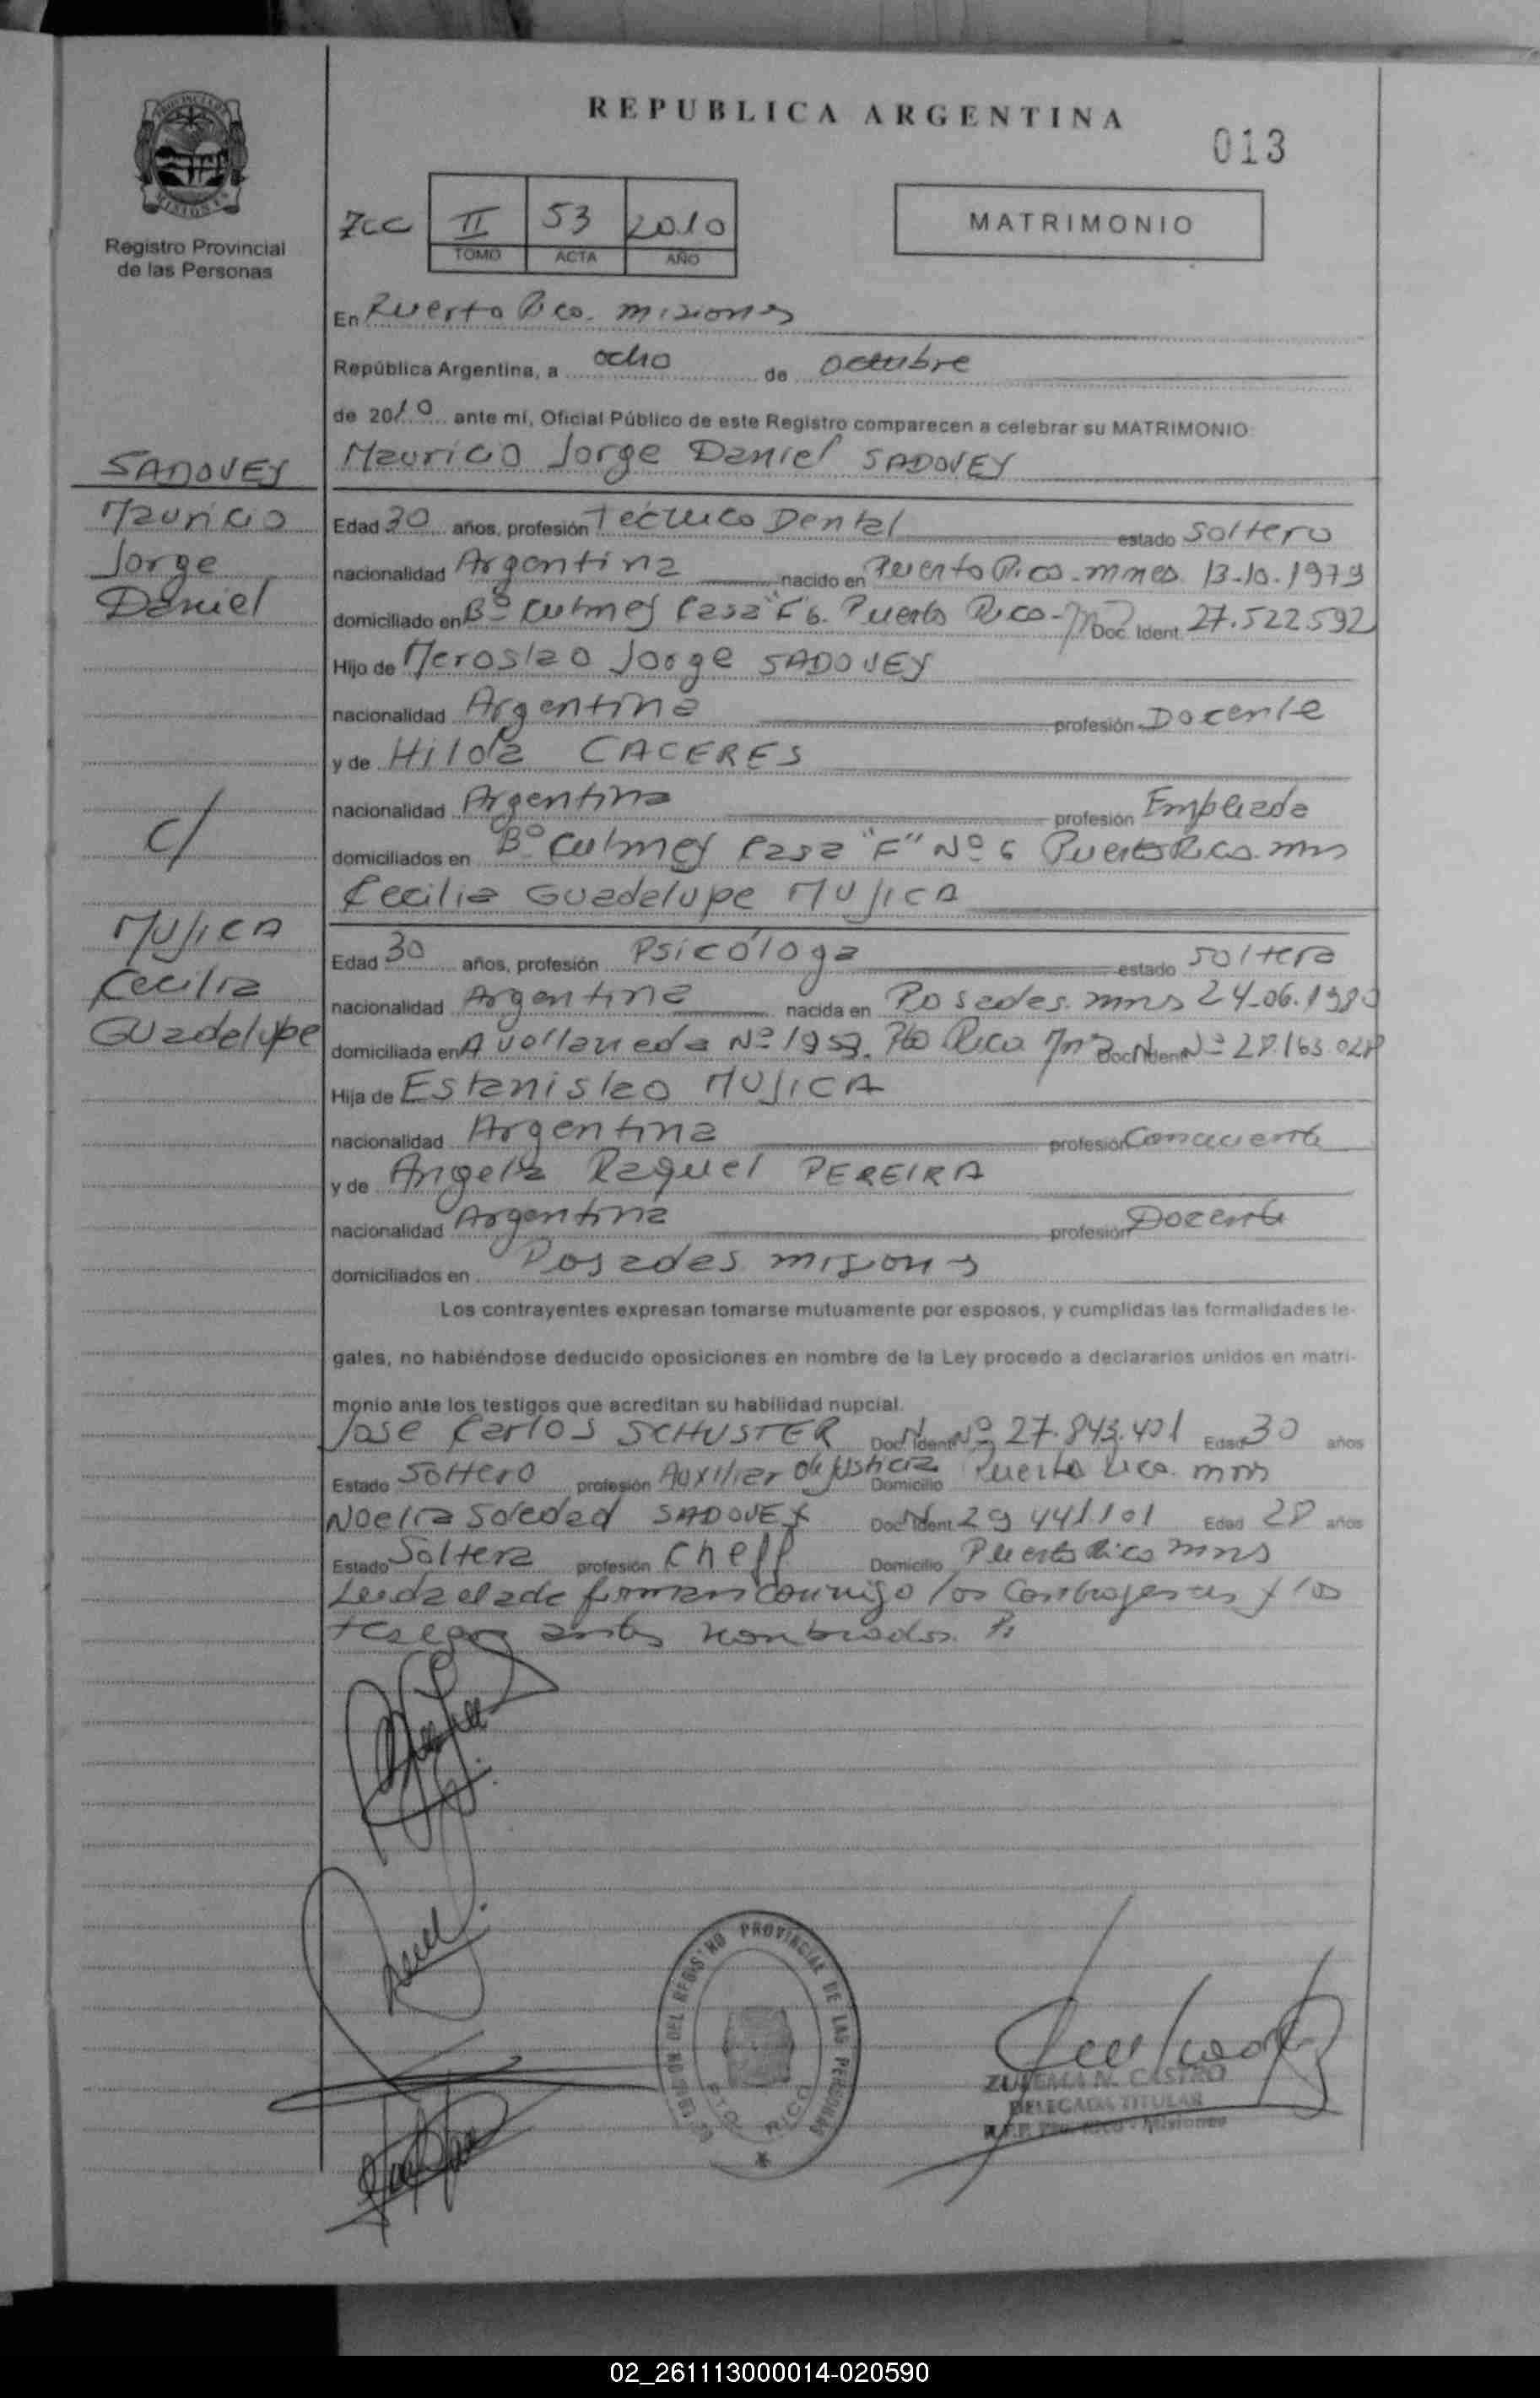 REPUBLICA ARGENTINA
013
Registro Provincial
de las Personas
II 53 2010
TOMO ACTA AÑO
MATRIMONIO
En Puerto Rico. Misiones
República Argentina, a ocho de octubre
de 2010 ante mí, Oficial Público de este Registro comparecen a celebrar su MATRIMONIO:
SADOVEY
Mauricio
Jorge
Daniel
Mauricio Jorge Daniel SADOVEY
Edad 30 años, profesión Técnico Dental estado Soltero
nacionalidad Argentina nacido en Puerto Rico - mnes. 13-10-1979
domiciliado en Bº Culmey Casa "F" 6. Puerto Rico - Doc. Ident. 27.522.592
Hijo de Meroslao Jorge SADOVEY
nacionalidad Argentina profesión Docente
y de Hilda CACERES
nacionalidad Argentina profesión Empleada
domiciliados en Bº Culmey Casa "F" Nº 6 Puerto Rico. mns
C/
MUJICA
Cecilia
Guadalupe
Cecilia Guadalupe MUJICA
Edad 30 años, profesión Psicóloga estado soltera
nacionalidad Argentina nacida en Posadas. mns 24-06-1980
domiciliada en Avellaneda Nº 1959. Pto Rico Doc. Ident. Nº 28.163.028
Hija de Estanislao MUJICA
nacionalidad Argentina profesión Comerciante
y de Angela Raquel PEREIRA
nacionalidad Argentina profesión Docente
domiciliados en Posadas misiones
Los contrayentes expresan tomarse mutuamente por esposos, y cumplidas las formalidades le-
gales, no habiéndose deducido oposiciones en nombre de la Ley procedo a declararlos unidos en matri-
monio ante los testigos que acreditan su habilidad nupcial.
Jose Carlos SCHUSTER Doc. Ident. Nº 27.843.401 Edad 30 años
Estado Soltero profesión Auxiliar de justicia Domicilio Puerto Rico. mns
Noelia Soledad SADOVEY Doc. Ident. 29 441.101 Edad 28 años
Estado Soltera profesión Cheff Domicilio Puerto Rico mns
Leida el acta firman conmigo los contrayentes y los
testigos antes nombrados.
DELEGACION DEL REGISTRO PROVINCIAL DE LAS PERSONAS
PTO. RICO
ZULEMA N. CASTRO
DELEGADA TITULAR
R.P.P. Pto. Rico - Misiones
02_261113000014-020590